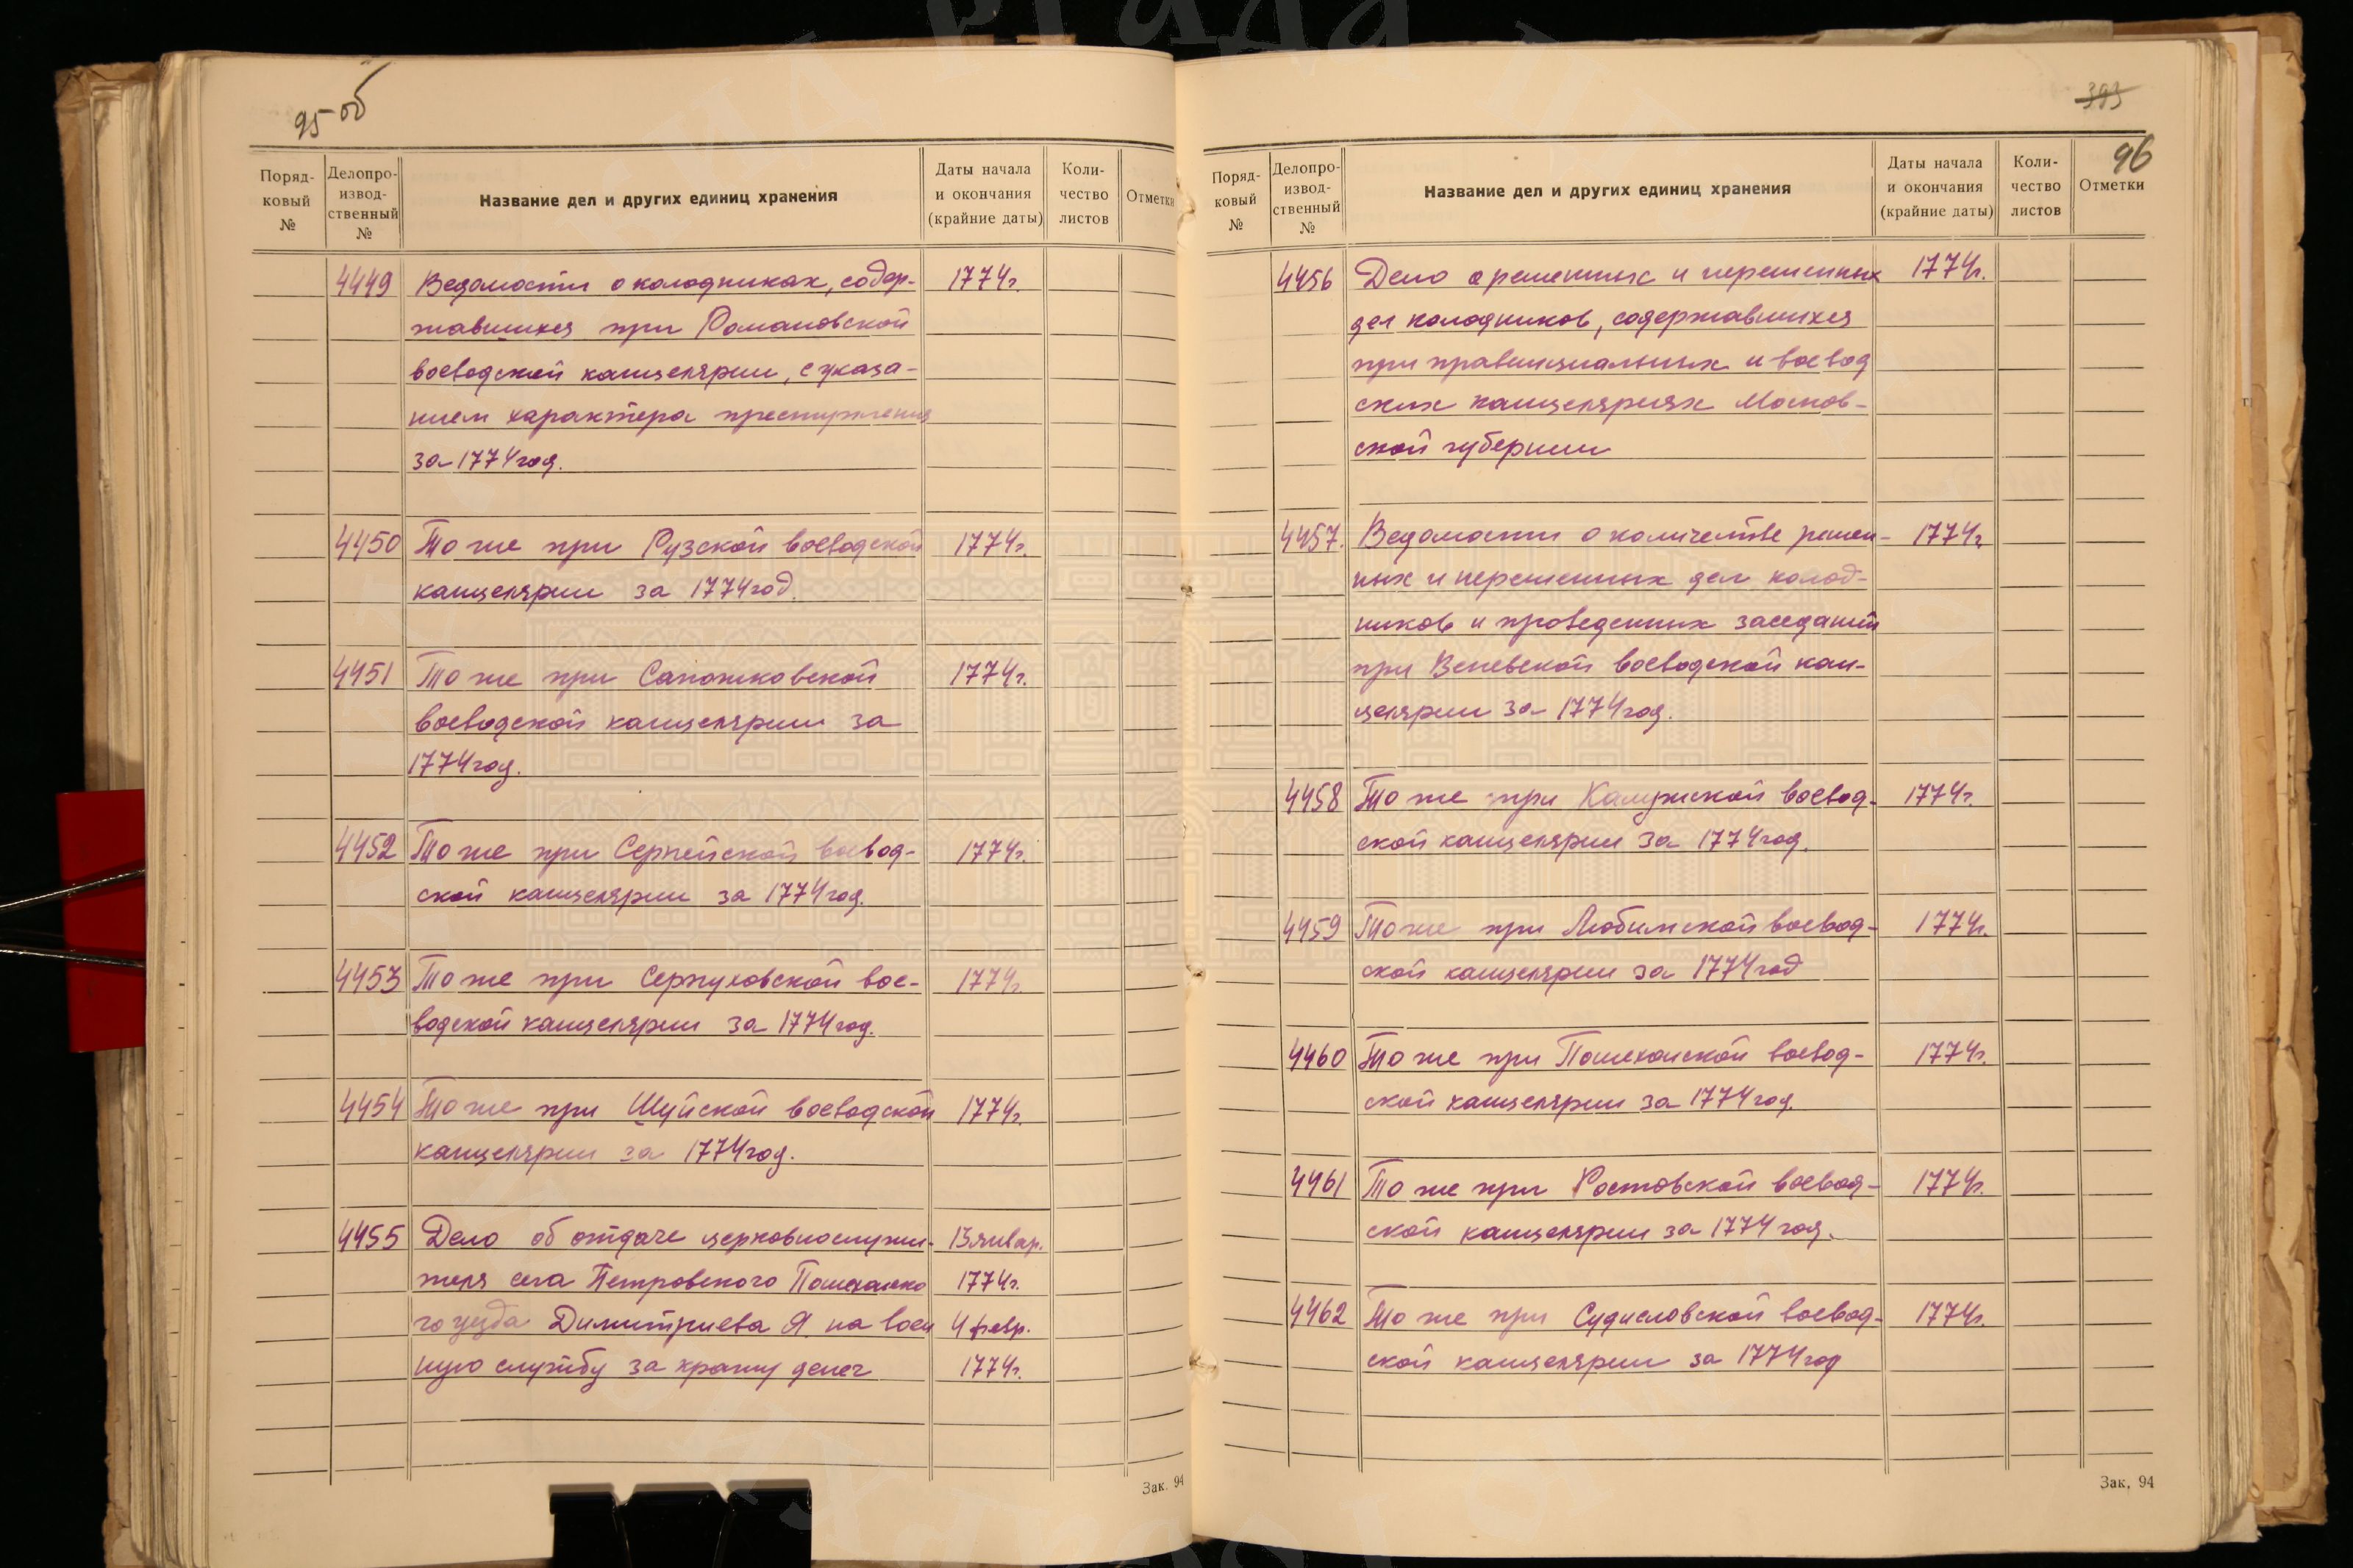 95 об
Поряд-
ковый
№
Делопро-
извод-
ственный
№
Название дел и других единиц хранения
Даты начала
и окончания
(крайние даты)
Коли-
чество
листов
Отметки
4449 Ведомости о колодниках, содер- 1774г.
жавшихся при Романовской
воеводской канцелярии, с указа-
нием характера преступления
за 1774 год.
4450 То же при Рузской воеводской 1774г.
канцелярии за 1774 год.
4451 То же при Сапожковской 1774г.
воеводской канцелярии за
1774 год.
4452 То же при Серпейской воевод- 1774г.
ской канцелярии за 1774 год.
4453 То же при Серпуховской вое- 1774г.
водской канцелярии за 1774 год.
4454 То же при Шуйской воеводской 1774г.
канцелярии за 1774 год.
4455 Дело об отдаче церковнослужи- 13 январ.
теля села Петровского Пошехонско 1774г.
го уезда Димитриева Я. на воен 4 февр.
ную службу за кражу денег 1774г.
Зак. 94
393
96
Поряд-
ковый
№
Делопро-
извод-
ственный
№
Название дел и других единиц хранения
Даты начала
и окончания
(крайние даты)
Коли-
чество
листов
Отметки
4456 Дело о решенных и нерешенных 1774г.
дел колодников, содержавшихся
при правинциальных и воевод
ских канцеляриях Москов-
ской губернии
4457. Ведомости о количестве решен- 1774г.
ных и нерешенных дел колод-
ников и проведенных заседаний
при Веневской воеводской кан-
целярии за 1774 год.
4458 То же при Калужской воевод- 1774г.
ской канцелярии за 1774 год.
4459 То же при Любимской воевод- 1774г.
ской канцелярии за 1774 год
4460 То же при Пошехонской воевод- 1774г.
ской канцелярии за 1774 год.
4461 То же при Ростовской воевод- 1774г.
ской канцелярии за 1774 год.
4462 То же при Судисловской воевод- 1774г.
ской канцелярии за 1774 год
Зак. 94